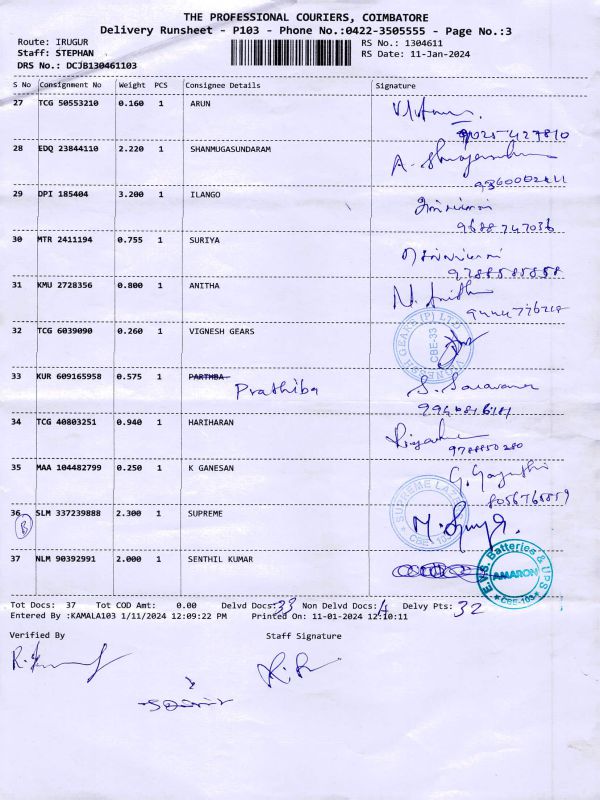 THE PROFESSIONAL COURIERS, COIMBATORE
Delivery Runsheet - P103 - Phone No.:0422-3505555 - Page No.:3
Route: IRUGUR RS No.: 1304611
Staff: STEPHAN RS Date: 11-Jan-2024
DRS No.: DCJB130461103
S No Consignment No Weight PCS Consignee Details Signature
27 TCG 50553210 0.160 1 ARUN
9025427810
28 EDQ 23844110 2.220 1 SHANMUGASUNDARAM
29 DPI 185404 3.200 1 ILANGO
9688747036
30 MTR 2411194 0.755 1 SURIYA
9788585858
31 KMU 2728356 0.800 1 ANITHA
N. Anitha
32 TCG 6039090 0.260 1 VIGNESH GEARS
VIGNESH GEARS (P) LTD CBE-33
33 KUR 609165958 0.575 1 PARTHBA
Prathiba S. Saravana
34 TCG 40803251 0.940 1 HARIHARAN
9788850280
35 MAA 104482799 0.250 1 K GANESAN
G. Gayathri
8056765859
36 SLM 337239888 2.300 1 SUPREME
B
SUPREME CBE-103
37 NLM 90392991 2.000 1 SENTHIL KUMAR
E.V.S. Batteries & UPS AMARON CBE-103
Tot Docs: 37 Tot COD Amt: 0.00 Delvd Docs: 33 Non Delvd Docs: 4 Delvy Pts: 32
Entered By :KAMALA103 1/11/2024 12:09:22 PM Printed On: 11-01-2024 12:10:11
Verified By Staff Signature